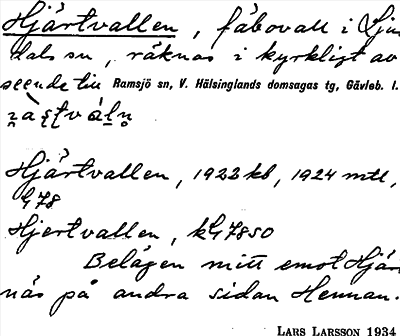 Hjärtvallen, fäbovall i Ljus
dals sn, räknas i kyrkligt av
seende till Ramsjö sn, V. Hälsinglands domsagas tg, Gävleb. l.
Hjärtvallen, 1923 kb, 1924 mtl,
G78
Hjertvallen, kG7850
Belägen mitt emot Hjär
näs på andra sidan Hennan.
LARS LARSSON 1934